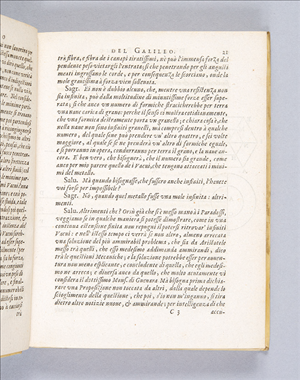 DEL GALILEO. 21
trò fibra, e fibra de i canapi tiratissimi, nè può l'immensa forza del
pendente peso vietargli l'entrata; sì che penetrando per gli angusti
meati ingrossano le corde, e per consequenza le scorciano, onde la
mole gravissima à forza vien sollevata.
Sagr. Ei non è dubbio alcuno, che, mentre una resistenza non
sia infinita, può dalla moltitudine di minutissime forze esser supe-
rata; sì che anco un numero di formiche stracicherebbe per terra
una nave carica di grano: perche il senso ci mostra cotidianamente,
che una formica destramente porta un granello; e chiara cosa è, che
nella nave non sono infiniti granelli, mà compresi dentro à qualche
numero, del quale se ne può prendere un'altro quattro, e sei volte
maggiore, al quale se se ne prenderà un'altro di formiche eguale,
e si porranno in opera, condurranno per terra il grano, e la nave an-
cora. È ben vero, che bisognerà, che il numero sia grande, come
anco per mio parere quello de i Vacui, che tengono attaccati i mini-
mi del metallo.
Salu. Mà quando bisognasse, che fussero anche infiniti, l'havete
voi forse per impossibile?
Sagr. Nò, quando quel metallo fusse una mole infinita: altri-
menti.
Salu. Altrimenti che? Orsù già che si è messo mano à i Paradossi,
veggiamo se in qualche maniera si potesse dimostrare, come in una
continua estensione finita non repugni il potersi ritrovar' infiniti
Vacui: e nell'istesso tempo ci verrà se non altro, almeno arrecata
una soluzione del più ammirabil problema, che sia da Aristotele
messo trà quelli, che esso medesimo addimanda ammirandi; dico
trà le quistioni Mecaniche; e la soluzione potrebbe esser per avven-
tura non meno esplicante, e concludente di quella, che egli medesi-
mo ne arreca; e diversa anco da quello, che molto acutamente vi
considera il dottissimo Mons. di Guevara. Mà bisogna prima dichia-
rare una Propositione non toccata da altri, dalla quale depende lo
scioglimento della questione, che poi, s'io non m'inganno, si tira
dietro altre notizie nuove, & ammirande; per intelligenza di che
C 3 accu-